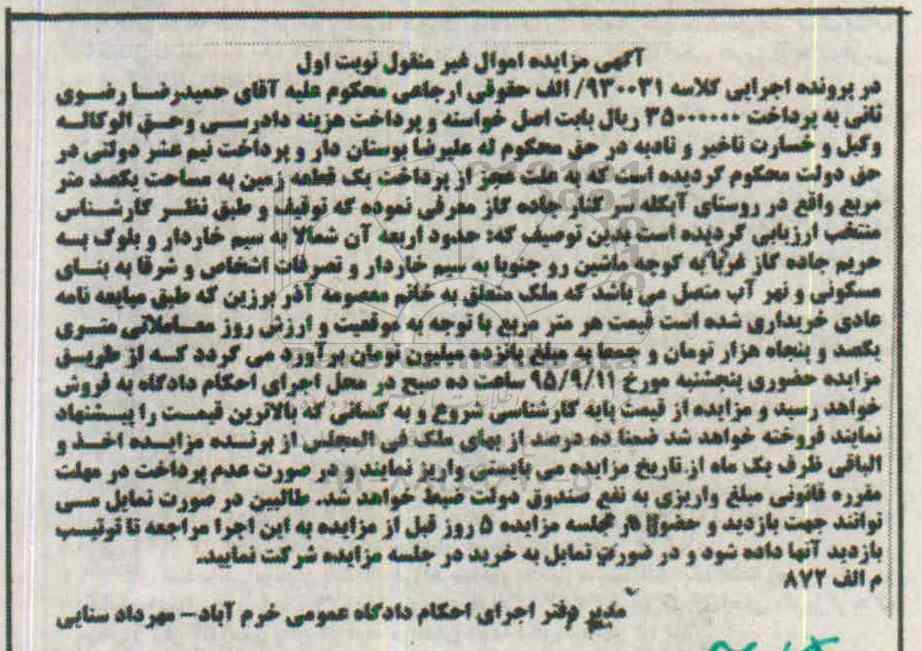 آگهی مزایده اموال غیر منقول نوبت اول
در پرونده اجرایی کلاسه ۹۳۰۰۳۱/ الف حقوقی ارجاعی محکوم علیه آقای حمیدرضا رضوی
ثانی به پرداخت ۳۵۰۰۰۰۰۰ ریال بابت اصل خواسته و پرداخت هزینه دادرسی وحق الوکاله
وکیل و خسارت تاخیر و تادیه در حق محکوم له علیرضا بوستان دار و پرداخت نیم عشر دولتی در
حق دولت محکوم گردیده است که به علت عجز از پرداخت یک قطعه زمین به مساحت یکصد متر
مربع واقع در روستای آبکله سر کنار جاده گاز معرفی نموده که توقیف و طبق نظر کارشناس
منتخب ارزیابی گردیده است بدین توصیف که: حدود اربعه آن شمالا به سیم خاردار و بلوک به
حریم جاده گاز غربا به کوچه ماشین رو جنوبا به سیم خاردار و تصرفات اشخاص و شرقا به بنای
مسکونی و نهر آب متصل می باشد که ملک متعلق به خانم معصومه آذر برزین که طبق مبایعه نامه
عادی خریداری شده است قیمت هر متر مربع با توجه به موقعیت و ارزش روز معاملاتی متری
یکصد و پنجاه هزار تومان و جمعا به مبلغ پانزده میلیون تومان برآورد می گردد که از طریق
مزایده حضوری پنجشنبه مورخ ۹۵/۹/۱۱ ساعت ده صبح در محل اجرای احکام دادگاه به فروش
خواهد رسید و مزایده از قیمت پایه کارشناسی شروع و به کسانی که بالاترین قیمت را پیشنهاد
نمایند فروخته خواهد شد ضمنا ده درصد از بهای ملک فی المجلس از برنده مزایده اخذ و
الباقی ظرف یک ماه از تاریخ مزایده می بایستی واریز نمایند و در صورت عدم پرداخت در مهلت
مقرره قانونی مبلغ واریزی به نفع صندوق دولت ضبط خواهد شد. طالبین در صورت تمایل می
توانند جهت بازدید و حضور در جلسه مزایده ۵ روز قبل از مزایده به این اجرا مراجعه تا ترتیب
بازدید آنها داده شود و در صورت تمایل به خرید در جلسه مزایده شرکت نمایید.
م الف ۸۷۲
مدیر دفتر اجرای احکام دادگاه عمومی خرم آباد- مهرداد سنایی